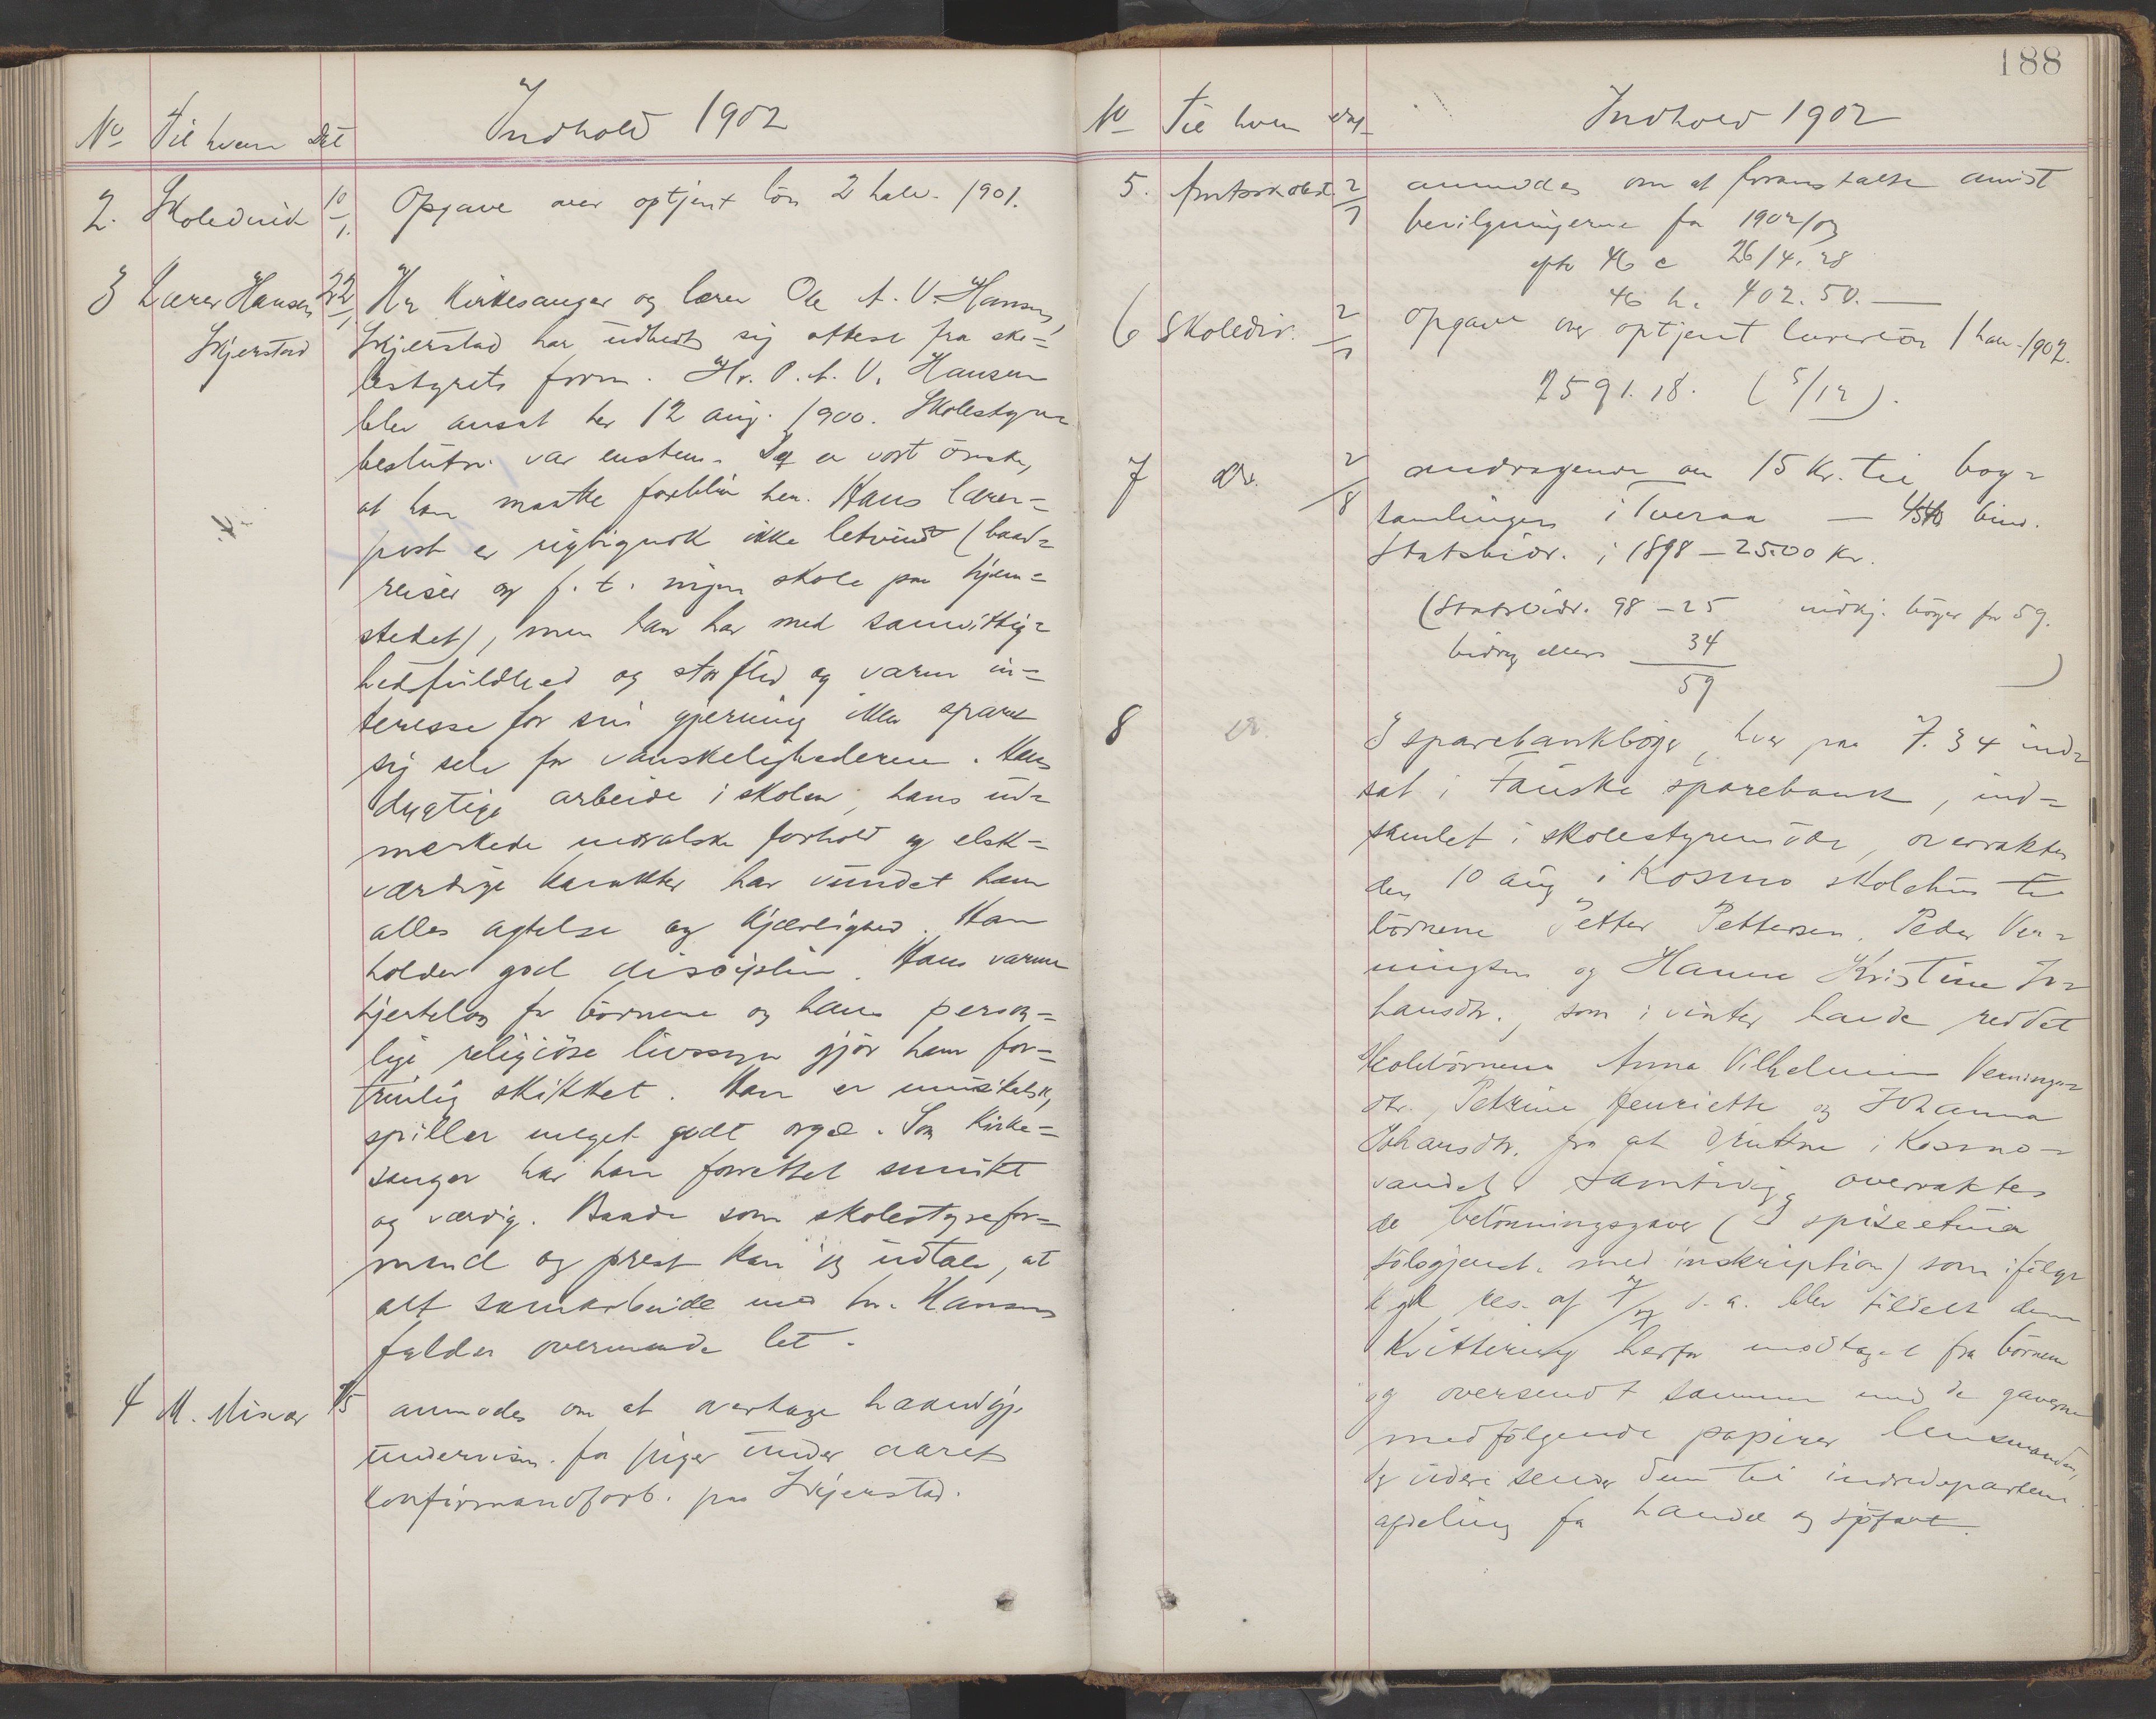 No Til hvem Dat Indhold 1902
2. Skoledirek 10/1. Opgave over optjent løn 2 halv. 1901.
3 Lærer Hansen 22/1 Hr. Kirkesanger og lærer Ole A. V. Hansen,
Skjerstad Skjerstad har udbedt sig attest fra sko=
lestyrets form. Hr. O. A. V. Hansen
blev ansat her 12 aug. 1900. Skolestyrets
beslutn. var enstem. Det er vort ønske,
at han maatte forblive her. Hans lærer=
post er rigtignok ikke letvindt (baad=
reiser og p. t. ingen skole paa hjem=
stedet), men han har med samvittig=
hedsfuldhed og stor flid og varm in=
teresse for sin gjerning ikke sparet
sig selv for vanskelighederne. Hans
dygtige arbeide i skolen, hans ud=
merkede moralske forhold og elsk=
værdige karakter har vundet ham
alles agtelse og kjærlighed. Han
holder god disciplin. Hans varme
hjertelag for børnene og hans person=
lige religiøse livssyn gjør ham for=
trinlig skikket. Han er musikalsk,
spiller meget godt orgel. Som kirke=
sanger har han forrettet smukt
og værdig. Baade som skolestyrefor=
mand og prest kan jeg udtale, at
alt samarbeide med hr. Hansen
falder overmaade let.
4 M. Misvær /5 anmodes om at overtage haandgj.
undervisn. for piger under aarets
konfirmandforb. paa Skjerstad.
188
No Til hvem Dat Indhold 1902
5. Amtsskolest. 2/7 anmodes om at foranstalte anvist
bevilgningerne for 1902/03
efter 46 c 26/4. 28
46 h. 402.50.
6 Skoledir. 2/7 Opgave over optjent lærerløn 1 halv. 1902.
2591.18. (5/12).
7 Do. 2/8 andragende om 15 Kr. til bog=
samlingen i Tveraa — bind.
Statsbidr. i 1898 — 25.00 Kr.
(Statsbidr. 98 — 25 indkj. bøger for 59.
bidrag ellers 34
59 )
8 3 sparebankbøger, hver paa 7.34 ind=
sat i Fauske sparebank, ind=
samlet i skolestyremøde, overraktes
den 10 aug i Kosmo skolehus til
børnene Petter Pettersen, Peder Ven=
ningsen og Hanna Kristine Jo=
hansdtr., som i vinter havde reddet
skolebørnene Anna Vilhelmine Vennings=
dtr., Petrine Henriette og Johanna
Johansdtr. fra at drukne i Kosmo=
vandet. Samtidig overraktes
de belønningsgaver (3 spiseetuier
sølvgjenst. med inskription) som ifølge
kgl res. af d. a. blev tildelt dem
Kvittering herfor modtaget fra børnene
og oversendt sammen med de gaverne
medfølgende papirer lensmanden,
der videre sender dem til indredepartem.
afdeling for handel og sjøfart.